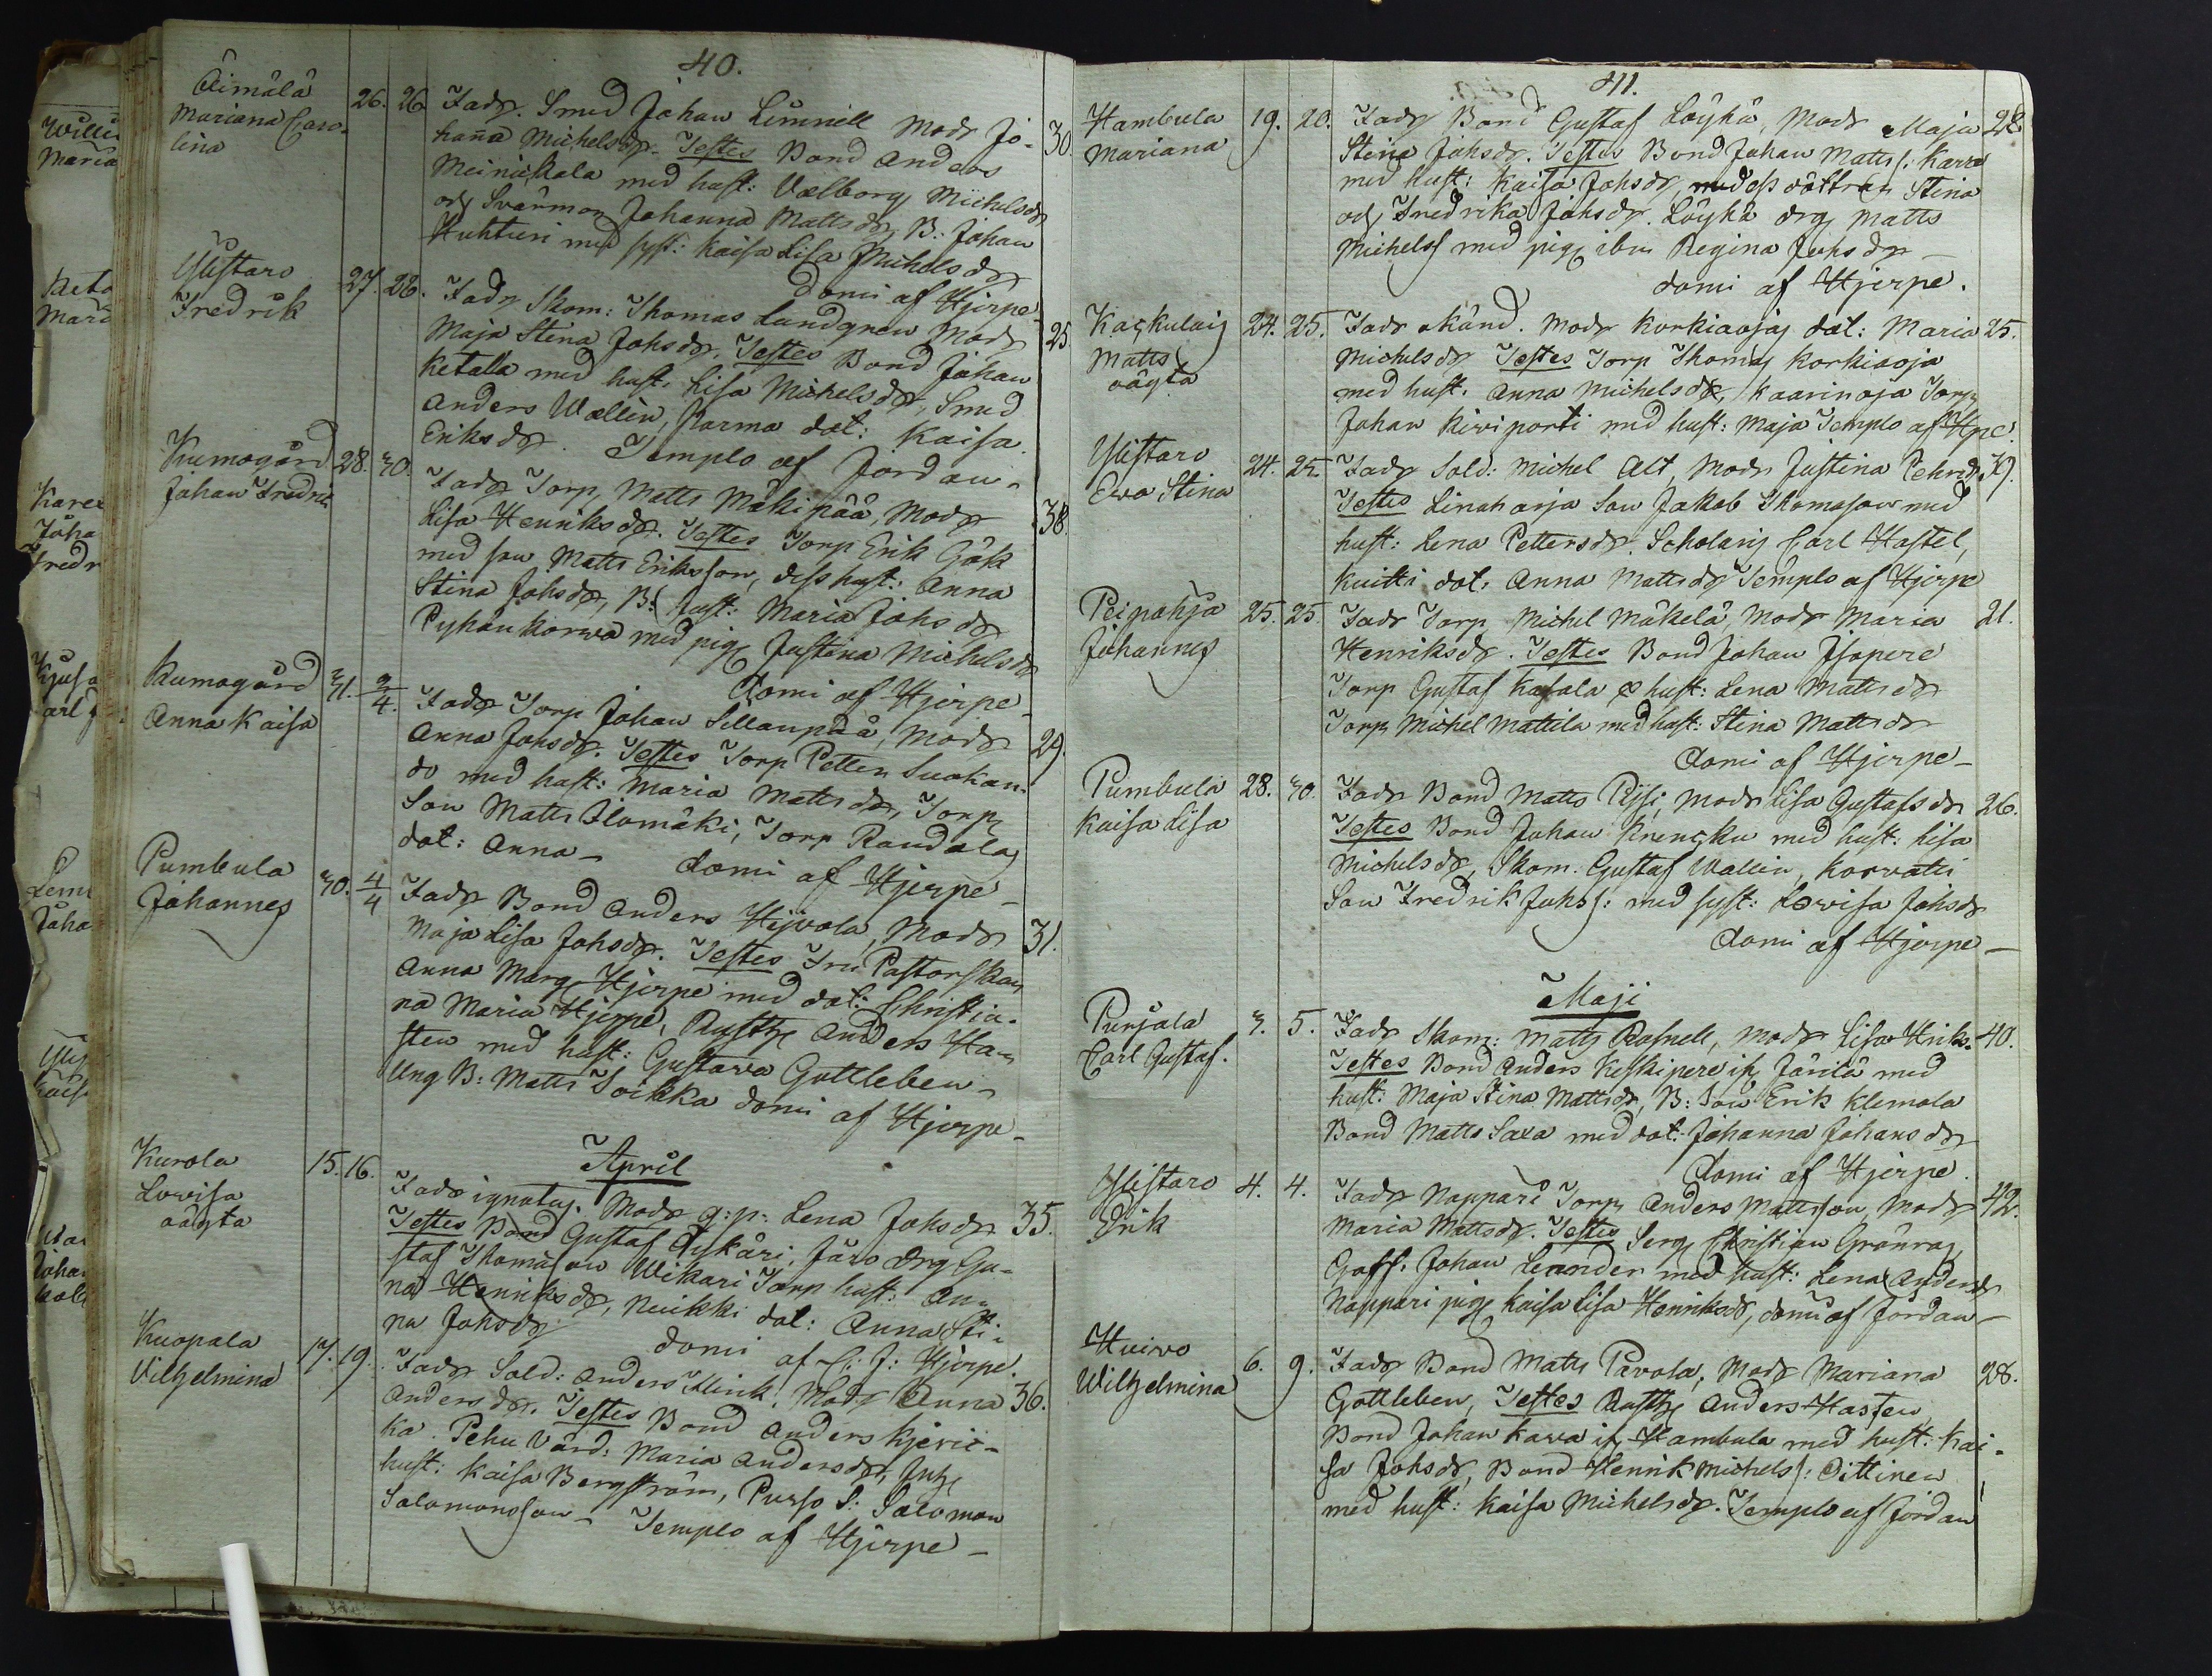 40.
Äimälä
Mariana Caro-
lina
26. 26
Fadr. Smed Johan Limnell Modr Jo-
hanna Michelsdr. Testes Bond Anders
Meinickala med hust: Valborg Michelsdr
och Svärmor Johanna Mattsdr, B: Johan
Huhtieri med syst: Kaisa Lisa Michelsdr
domi af Hjerpe
30.
Ylistaro
Fredrik
27. 28.
Fadr Skom: Thomas Lundgren Modr
Maja Stina Johsdr. Testes Bond Johan
Ketalla med hust. Lisa Michelsdr, Smed
Anders Wallin, Parma dot: Kaisa
Eriksdr. Templo af Jordan.
25
Kumogård
Johan Fredric
28. 30.
Fadr Torp, Matts Mäkipää, Modr
Lisa Henriksdr. Testes Torp Erik Gök
med son Matts Eriksson, dess hust: Anna
Stina Johsdr, B: hust: Maria Johsdr
Pyhänkorwa med pig Justina Michelsdr
domi af Hjerpe
38.
Kumogård
Anna Kaisa
31. 2/4.
Fadr Torp Johan Sillanpää, Modr
Anna Johsdr. Testes Torp Petter Suokan-
do med hust: Maria Mattsdr, Torp
Son Matts Ilomäki, Torp Randala
dot: Anna – domi af Hjerpe
29.
Pumbula
Johannes
30. 4/4
Fadr Bond Anders Hijvola, Modr
Maja Lisa Johsdr. Testes Fru Pastorskan
Anna Marg Hjerpe med dot: Christia-
na Maria Hjerpe, Rusth Anders Ha-
sten med hust: Gustava Gottleben
Ung B: Matts Soikka domi af Hjerpe
31.
April
Kurola
Lovisa
oägta
15. 16.
Fadr ignotus. Modr q: p: Lena Johsdr
Testes Bond Gustaf Dyskäri, Järo drg Gu-
staf Thomason Wikari Torp hust: An-
na Henriksdr, Nuikki dot: Anna Sti-
na Johsdr domi af C: J: Hjerpe.
35.
Kuopala
Vilhelmina
17. 19.
Fadr Sold: Anders Klink, Modr Anna
Andersdr. Testes Bond Anders Kjeric-
ka. Pehu Värd: Maria Andersdr, Inh
hust: Kaisa Bergström, Purso S: Salomon
Salomonsson – Templo af Hjerpe
36.
41.
Hambula
Mariana
19. 20.
Fadr Bond Gustaf Löyhä, Modr Maja
Stina Johsdr. Testes Bond Johan Matts: Karra
med hust: Kaisa Johsdr, med dss döttrar Stina
och Fredrika Johsdr. Löyhä drg Matts
Michels med pig ibm Regina Johsdr
domi af Hjerpe.
28
Kackulais
Matts
oägta
24. 25.
Fadr okänd. Modr Korkiaojas dot: Maria
Michelsdr Testes Torp Thomas Korkiaoja
med hust. Anna Michelsdr, Kaarinoja Torp
Johan Kiviporti med hust: Maja Templo af Hpe.
25.
Ylistaro
Eva Stina
24. 25.
Fadr Sold: Michel Alt, Modr Justina Pehrsdr
Testes Linaharja Son Jakob Thomason med
hust: Lena Pettersdr. Scholaris Carl Hastel,
Knitti dot. Anna Mattsdr Templo af Hjerpe
39.
Peipohja
Johannes
25. 25.
Fadr Torp Michel Mäkelä, Modr Maria
Henriksdr. Testes Bond Johan Isopere
Torp Gustaf Kasala & hust: Lena Mattsdr
Torp Michel Mattila med hust: Stina Mattsdr
domi af Hjerpe
21.
Pumbula
Kaisa Lisa
28. 30.
Fadr Bond Matts Pysi, Modr Lisa Gustafsdr
Testes Bond Johan Krencku med hust: Lisa
Michelsdr, Skom. Gustaf Wallin, Korvatti
Son Fredrik Johs: med syst: Lovisa Johsdr
domi af Hjerpe
26.
Maji
Punjala
Carl Gustaf.
3. 5.
Fadr Skom: Matts Rosnell, Modr Lisa Hriks.
Testes Bond Anders Keskipere ifr Järilä med
hust: Maja Stina Mattsdr, B: Son Erik Klemola
Bond Matts Saxa med dot. Johanna Johansdr
domi af Hjerpe.
40.
Ylistaro
Erik
4. 4.
Fadr Nappari Torp Anders Mattsson, Modr
Maria Mattsdr. Testes Serg Christian Grönroos,
Goss. Johan Leander med hust: Lena Andersdr
Nappari pig Kaisa Lisa Henriksdr, domi af Jordan
42.
Huivo
Wilhelmina
6. 9.
Fadr Bond Matts Pavola, Modr Mariana
Gottleben, Testes Rusth Anders Hasten
Bond Johan Kara ifr Hambula med hust: Kai-
sa Johsdr, Bond Henrik Michels: Dittinen
med hust: Kaisa Michelsdr. Templo af Jordan
28.